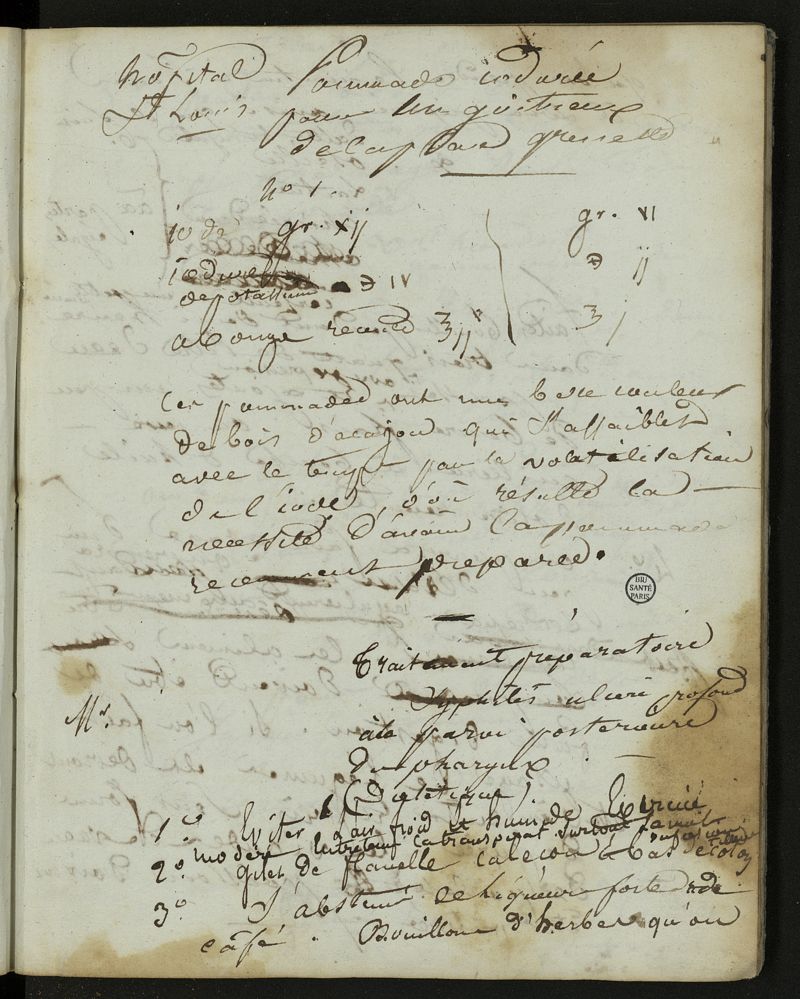 hôpital
St Louis
Pommade iodurée
pour un goitreux
de la place grenelle
No 1
iode gr. xij
gr. VI
iodure
de potassium ℈ IV
℈ ij
axonge récente ʒ ij
ʒ j
Ces pommades ont une belle couleur
de bois d'acajou qui s'affaiblit
avec le temps par la volatilisation
de l'iode, d'où résulte la
nécessité d'avoir la pommade
récemment préparée.
BIU
SANTÉ
PARIS
Traitement préparatoire
Mr.
Syphilis ulcère profond
à la paroi postérieure
du pharynx
(Diététique)
1o Eviter l'air froid et humide Exercice
modéré entretenir la transpirat surtout
2o gilet de flanelle caleçon bas de coton
3o S'abstenir de liqueurs fortes de
café. Bouillon d'herbes qu'on